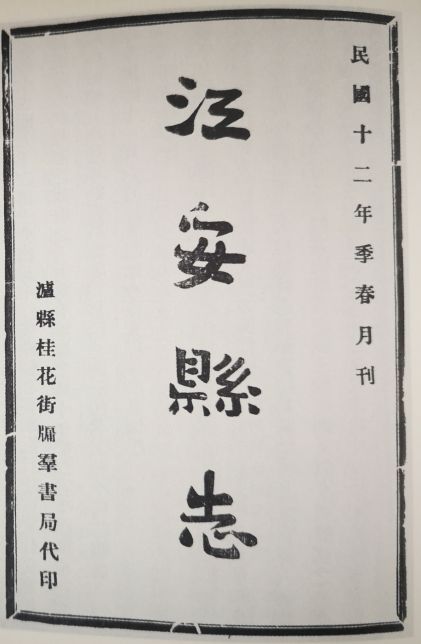 民國十二年季春月刊
江安縣志
瀘縣桂花街牖羣書局代印